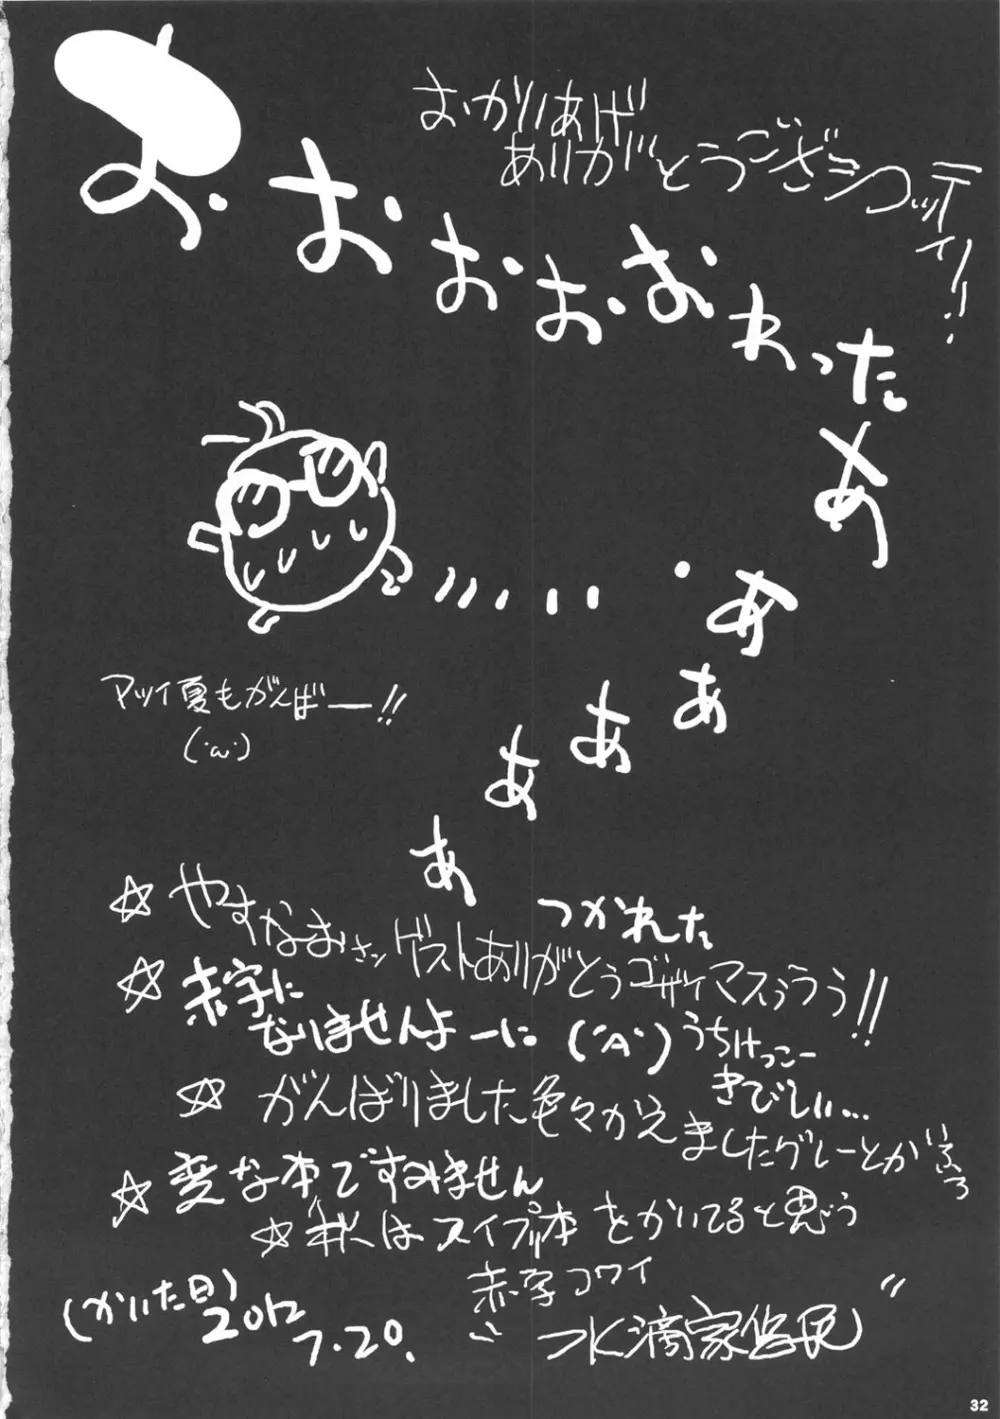 おかいあげ
ありがとうございコッティ!!
おおおおおわったぁぁぁぁぁぁ
アツイ夏もがんばー!!
(･ω･)
つかれた
☆やすなおさンゲストありがとうゴザイマスぅうぅ!!
☆赤字に
なりませんよーに(´A`)うちけっこー
きびしい…
☆がんばりました色々かえましたグレーとかいろ
☆変な本ですみません
☆秋はスイプリ本をかいてると思う
赤字コワイ
(かいた日)
2012
7.20.
水滴家
32